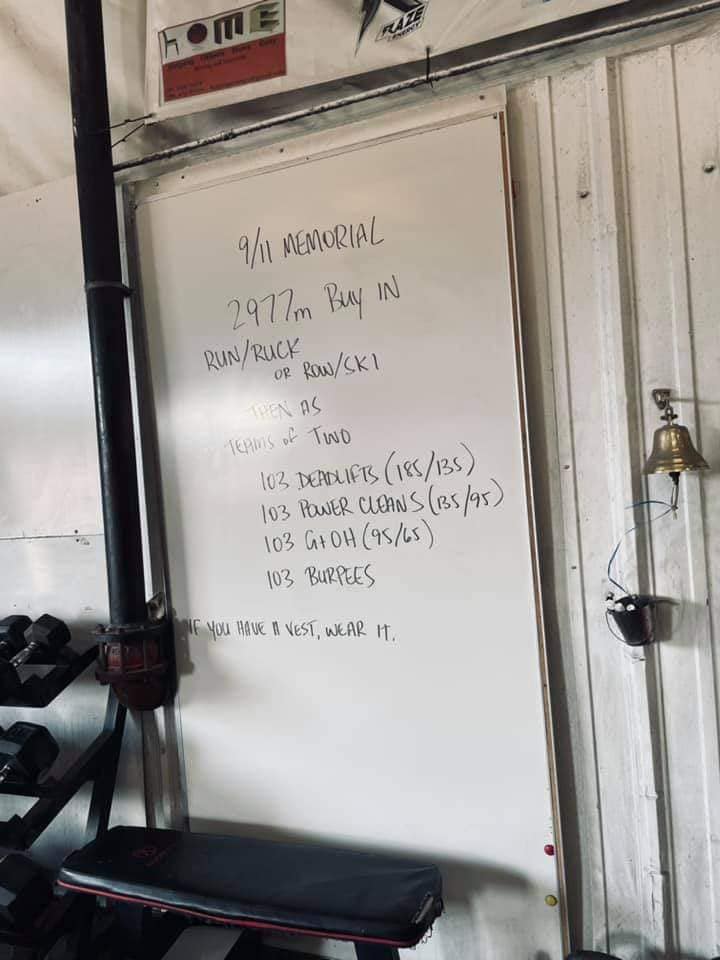 HOME
BLAZE
ENERGY
9/11 MEMORIAL
2977m BUY IN
RUN/RUCK
OR ROW/SKI
THEN AS
TEAMS OF TWO
103 DEADLIFTS (185/135)
103 POWER CLEANS (135/95)
103 GtOH (95/65)
103 BURPEES
IF YOU HAVE A VEST, WEAR IT.